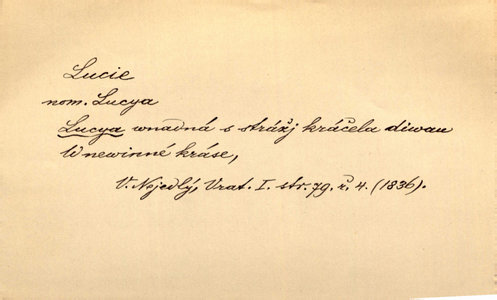 Lucie
nom. Lucya
Lucya wnadná s strážj kráčela diwau
W newinné kráse,
V. Nejedlý, Vrat. I. str. 79. ř. 4. (1836).